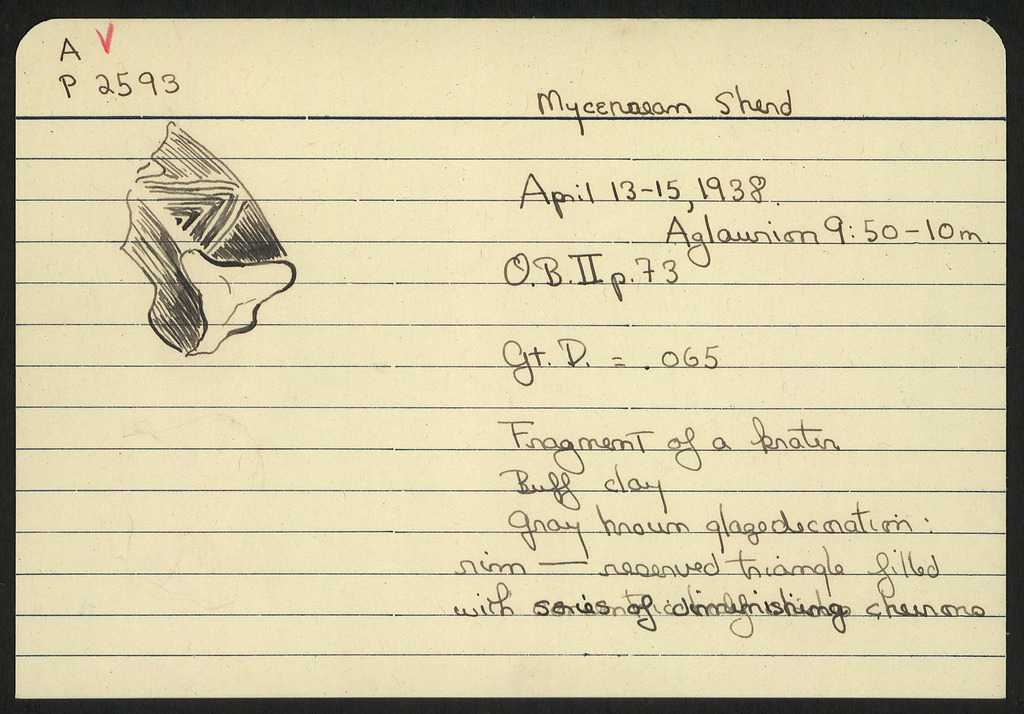 A ✓
P 2593
Mycenaean Sherd
April 13-15, 1938.
Aglaurion 9:50-10m.
O.B.II p.73
Gt. D. = .065
Fragment of a krater
Buff clay
Gray brown glaze decoration:
rim — reserved triangle filled
with series of diminishing chevrons